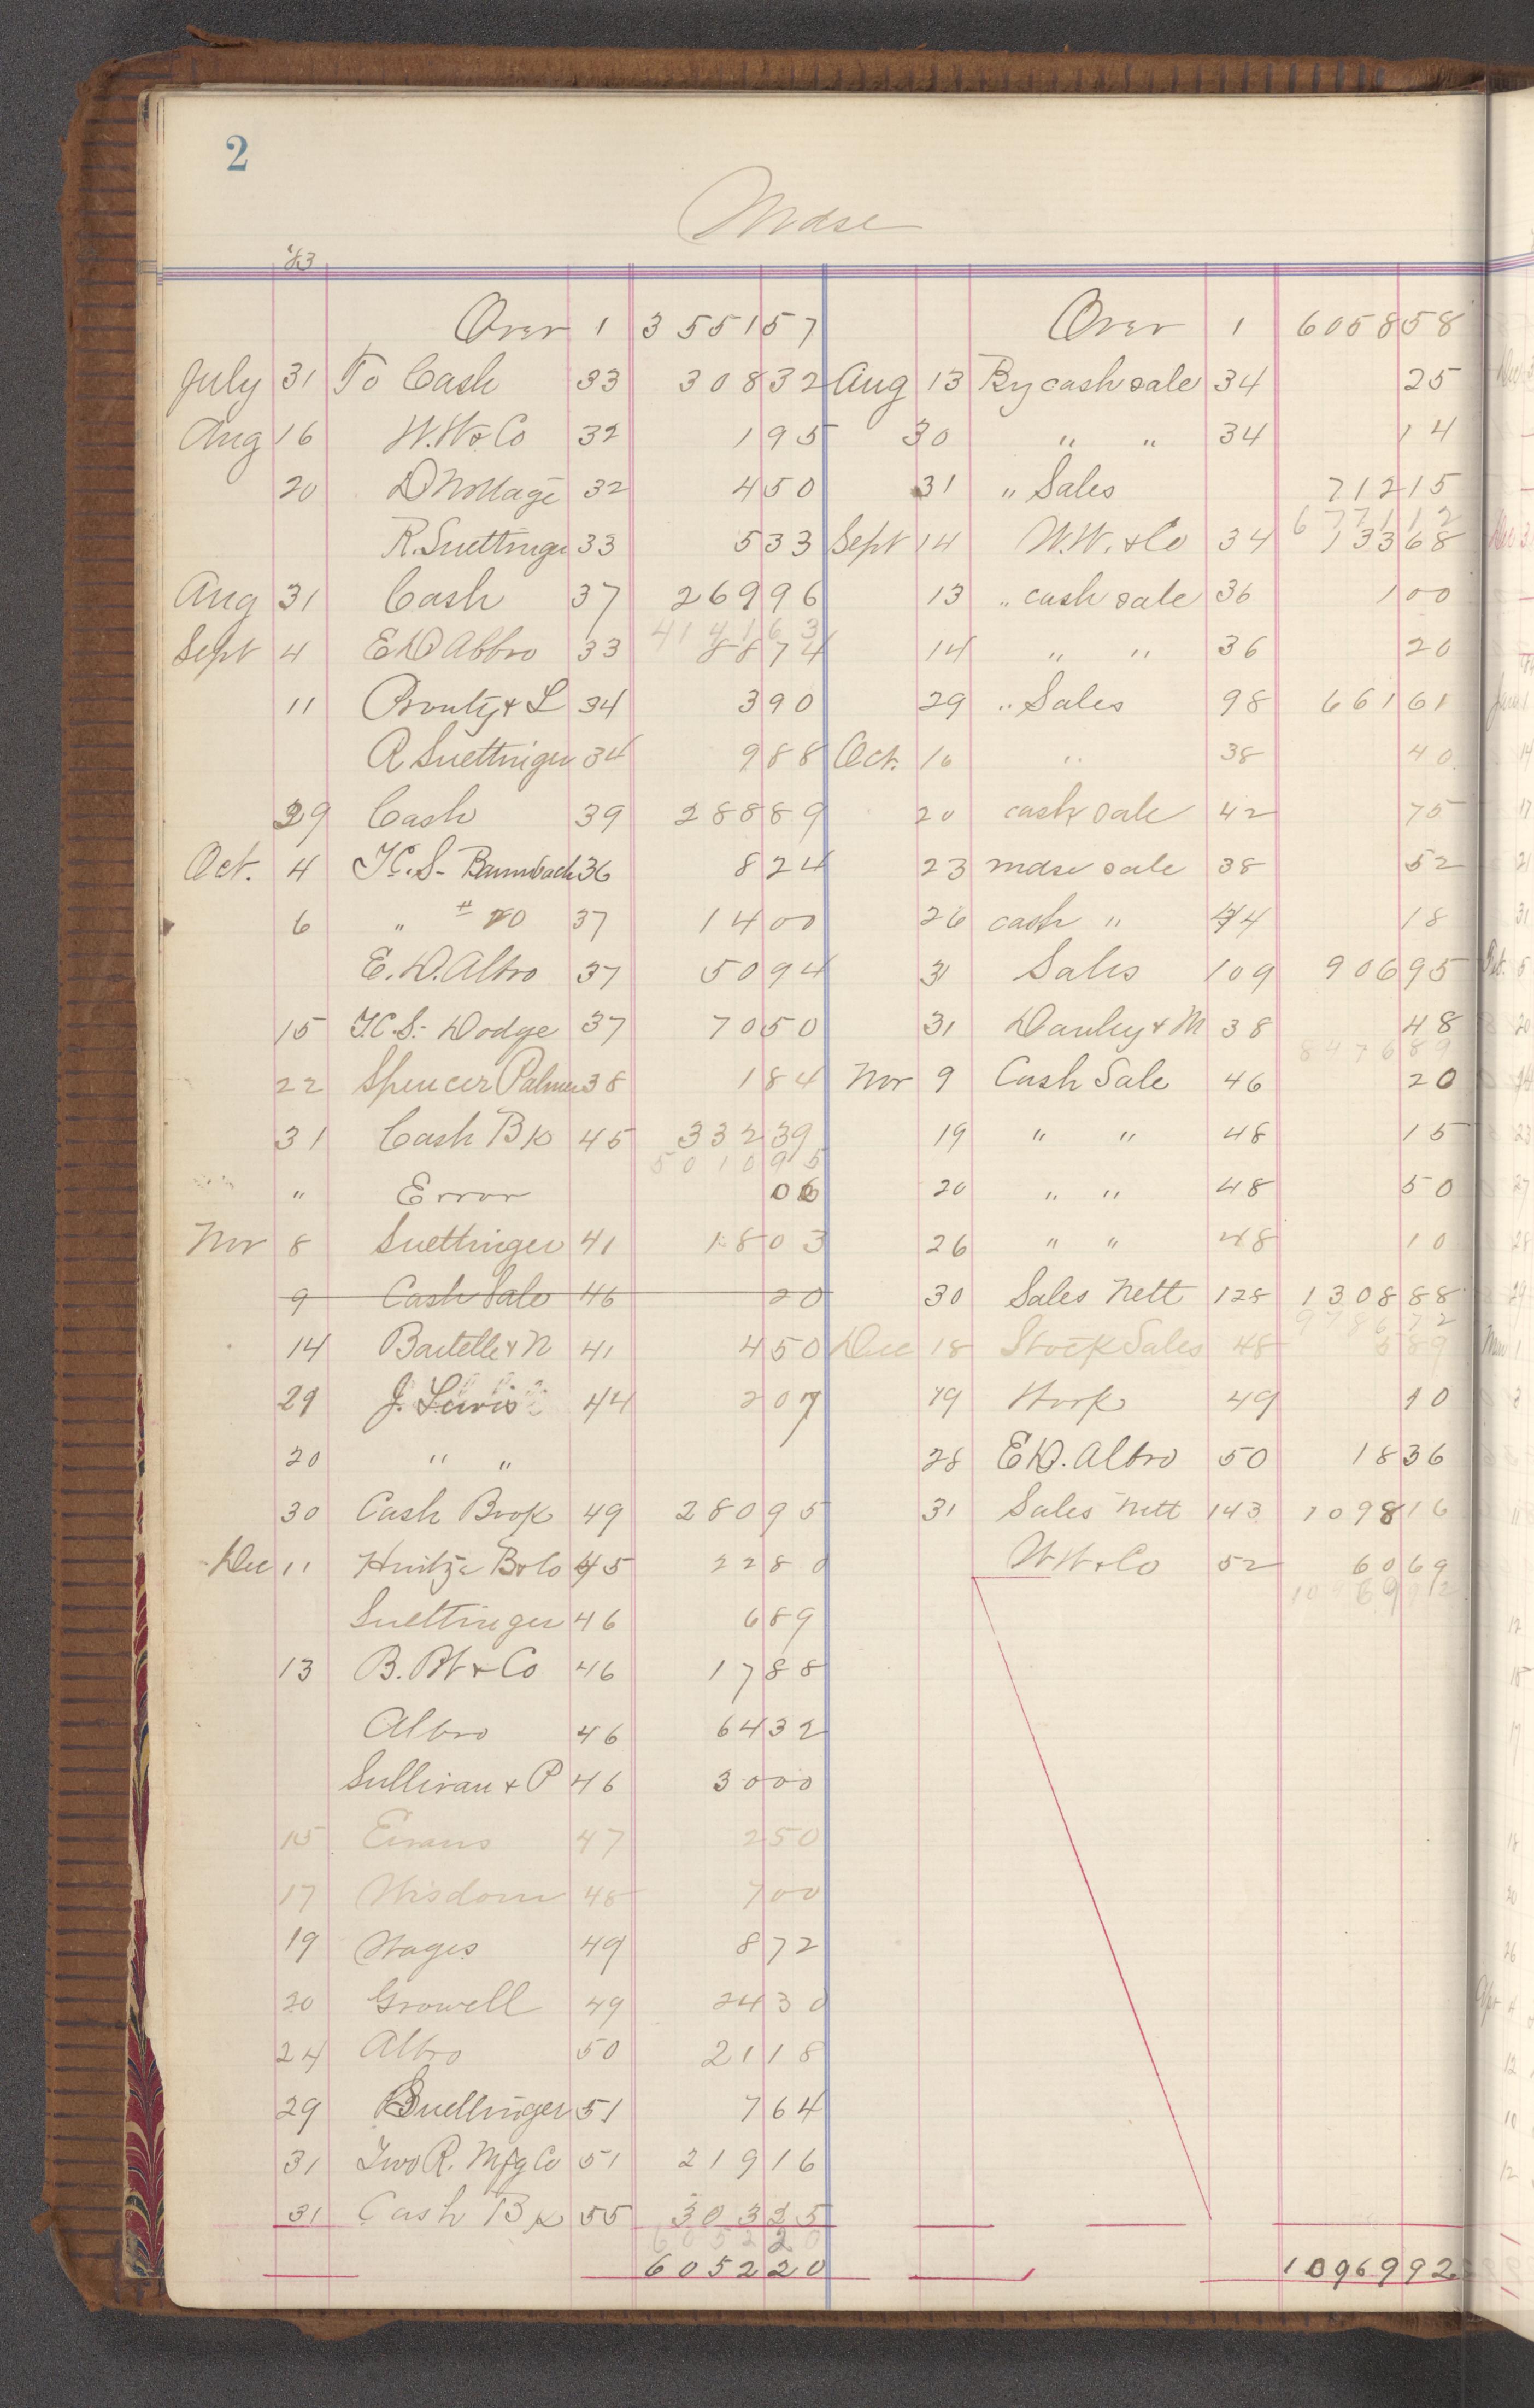 2
Mdse
'83
Over 1 3551 57 Over 1 6058 58
July 31 To Cash 33 308 32 Aug 13 By cash sale 34 25
Aug 16 W.W & Co 32 1 95 30 " " 34 14
20 32 4 50 31 " Sales 712 15
6771 12
R. Suettinger 33 5 33 Sept 14 W.W. & Co 34 133 68
Aug 31 Cash 37 269 96 13 " cash sale 36 1 00
4141 63
Sept 4 E D Albro 33 88 74 14 " " 36 20
11 Prouty & L 34 3 90 29 " Sales 98 661 61
R Suettinger 34 9 88 Oct. 16 " 38 40
29 Cash 39 288 89 20 cash sale 42 75
Oct. 4 T.C.S- Bambach 36 8 24 23 mdse sale 38 52
6 " # 20 37 14 00 26 cash " 44 18
E. D. Albro 37 50 94 31 Sales 109 906 95
15 T.C.S- Dodge 37 70 50 31 Danley & M 38 48
8476 89
22 Spencer Palmer 38 1 84 Nov 9 Cash Sale 46 20
31 Cash Bk 45 332 39 19 " " 48 15
5010 95
" Error 06 20 " " 48 50
Nov 8 Suettinger 41 18 03 26 " " 48 10
9 Cash Sale 46 20 30 Sales Nett 128 1308 88
9786 72
14 Bartelle & N 41 4 50 Dec 18 Stock Sales 48 5 89
29 J. Lewis 44 2 07 19 Work 49 10
20 " " 28 E D. Albro 50 18 36
30 Cash Book 49 280 95 31 Sales Nett 143 1098 16
Dec 11 Hintze B & Co 45 22 80 W W & Co 52 60 69
10969 92
Suettinger 46 6 89
13 B. W & Co 46 17 88
Albro 46 64 32
Sullivan & P 46 30 00
15 Evans 47 2 50
17 Wisdom 48 7 00
19 Wages 49 8 72
20 Growell 49 24 30
24 Albro 50 21 18
29 Suettinger 51 7 64
31 Two R. Mfg Co 51 219 16
31 Cash Bk 55 303 35
6052 20
6052 20 10969 92